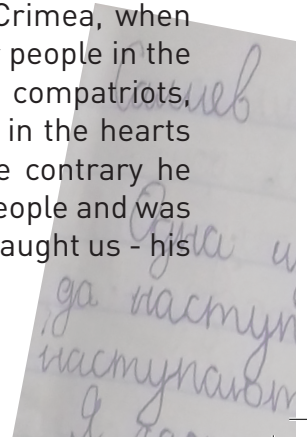 Crimea, when
people in the
compatriots,
in the hearts
contrary he
eople and was
aught us - his
Одна
да наступ
наступают
Я